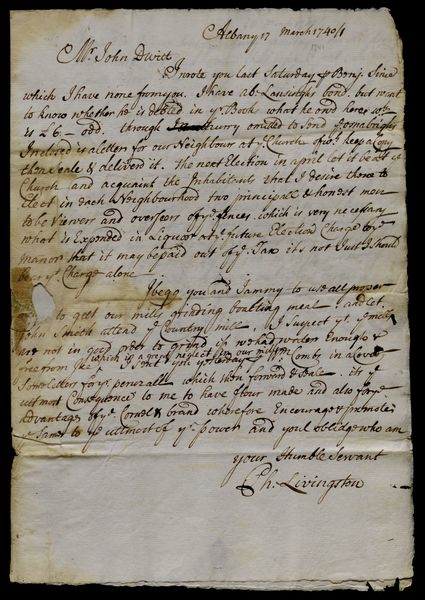 Albany 17 March 1740/1
Mr. John Dwitt
I wrote you last Saturday p Benj. Since
which I have none from you. I have ab. Lansinghs bond. but want
to know whether he is debted in ye. Book what he owd here
is £6 - odd. through hurry omitted to Send
Inclosed is a letter for our Neighbour at ye. Church of wc. keep a Copy
then Seale & deliver it. The next Election in april let it be at ye
Church and acquaint the Inhabitants that I desire them to
Elect in each Neighbourhood two principal & honest men
to be Viewers and overseers of ye. fences. which is very necessary
what is Expended in Liquor at ye. future Election Charge to ye.
manor that it may be paid out of ye. Tax its not Just I should
bear ye Charge alone
I begg you and Sammy to use all proper
to gett our mills grinding boulting meal and let
John Smith attend ye Country mill. I Suspect ye.
are not in good order to grind if we had water Enough &
which is a great neglect from our
free from Ice I Sent you yesterday Combs in a
Some letters for ye. which then forward & Seale. its ye
uttmost Consequence to me to have flour made and also for ye.
Advantage of ye. Cornel & brand wherefore Encourage & promote
ye Same to ye uttmost of yr. power and youl obblidge who am
your Humble Servant
Ph. Livingston